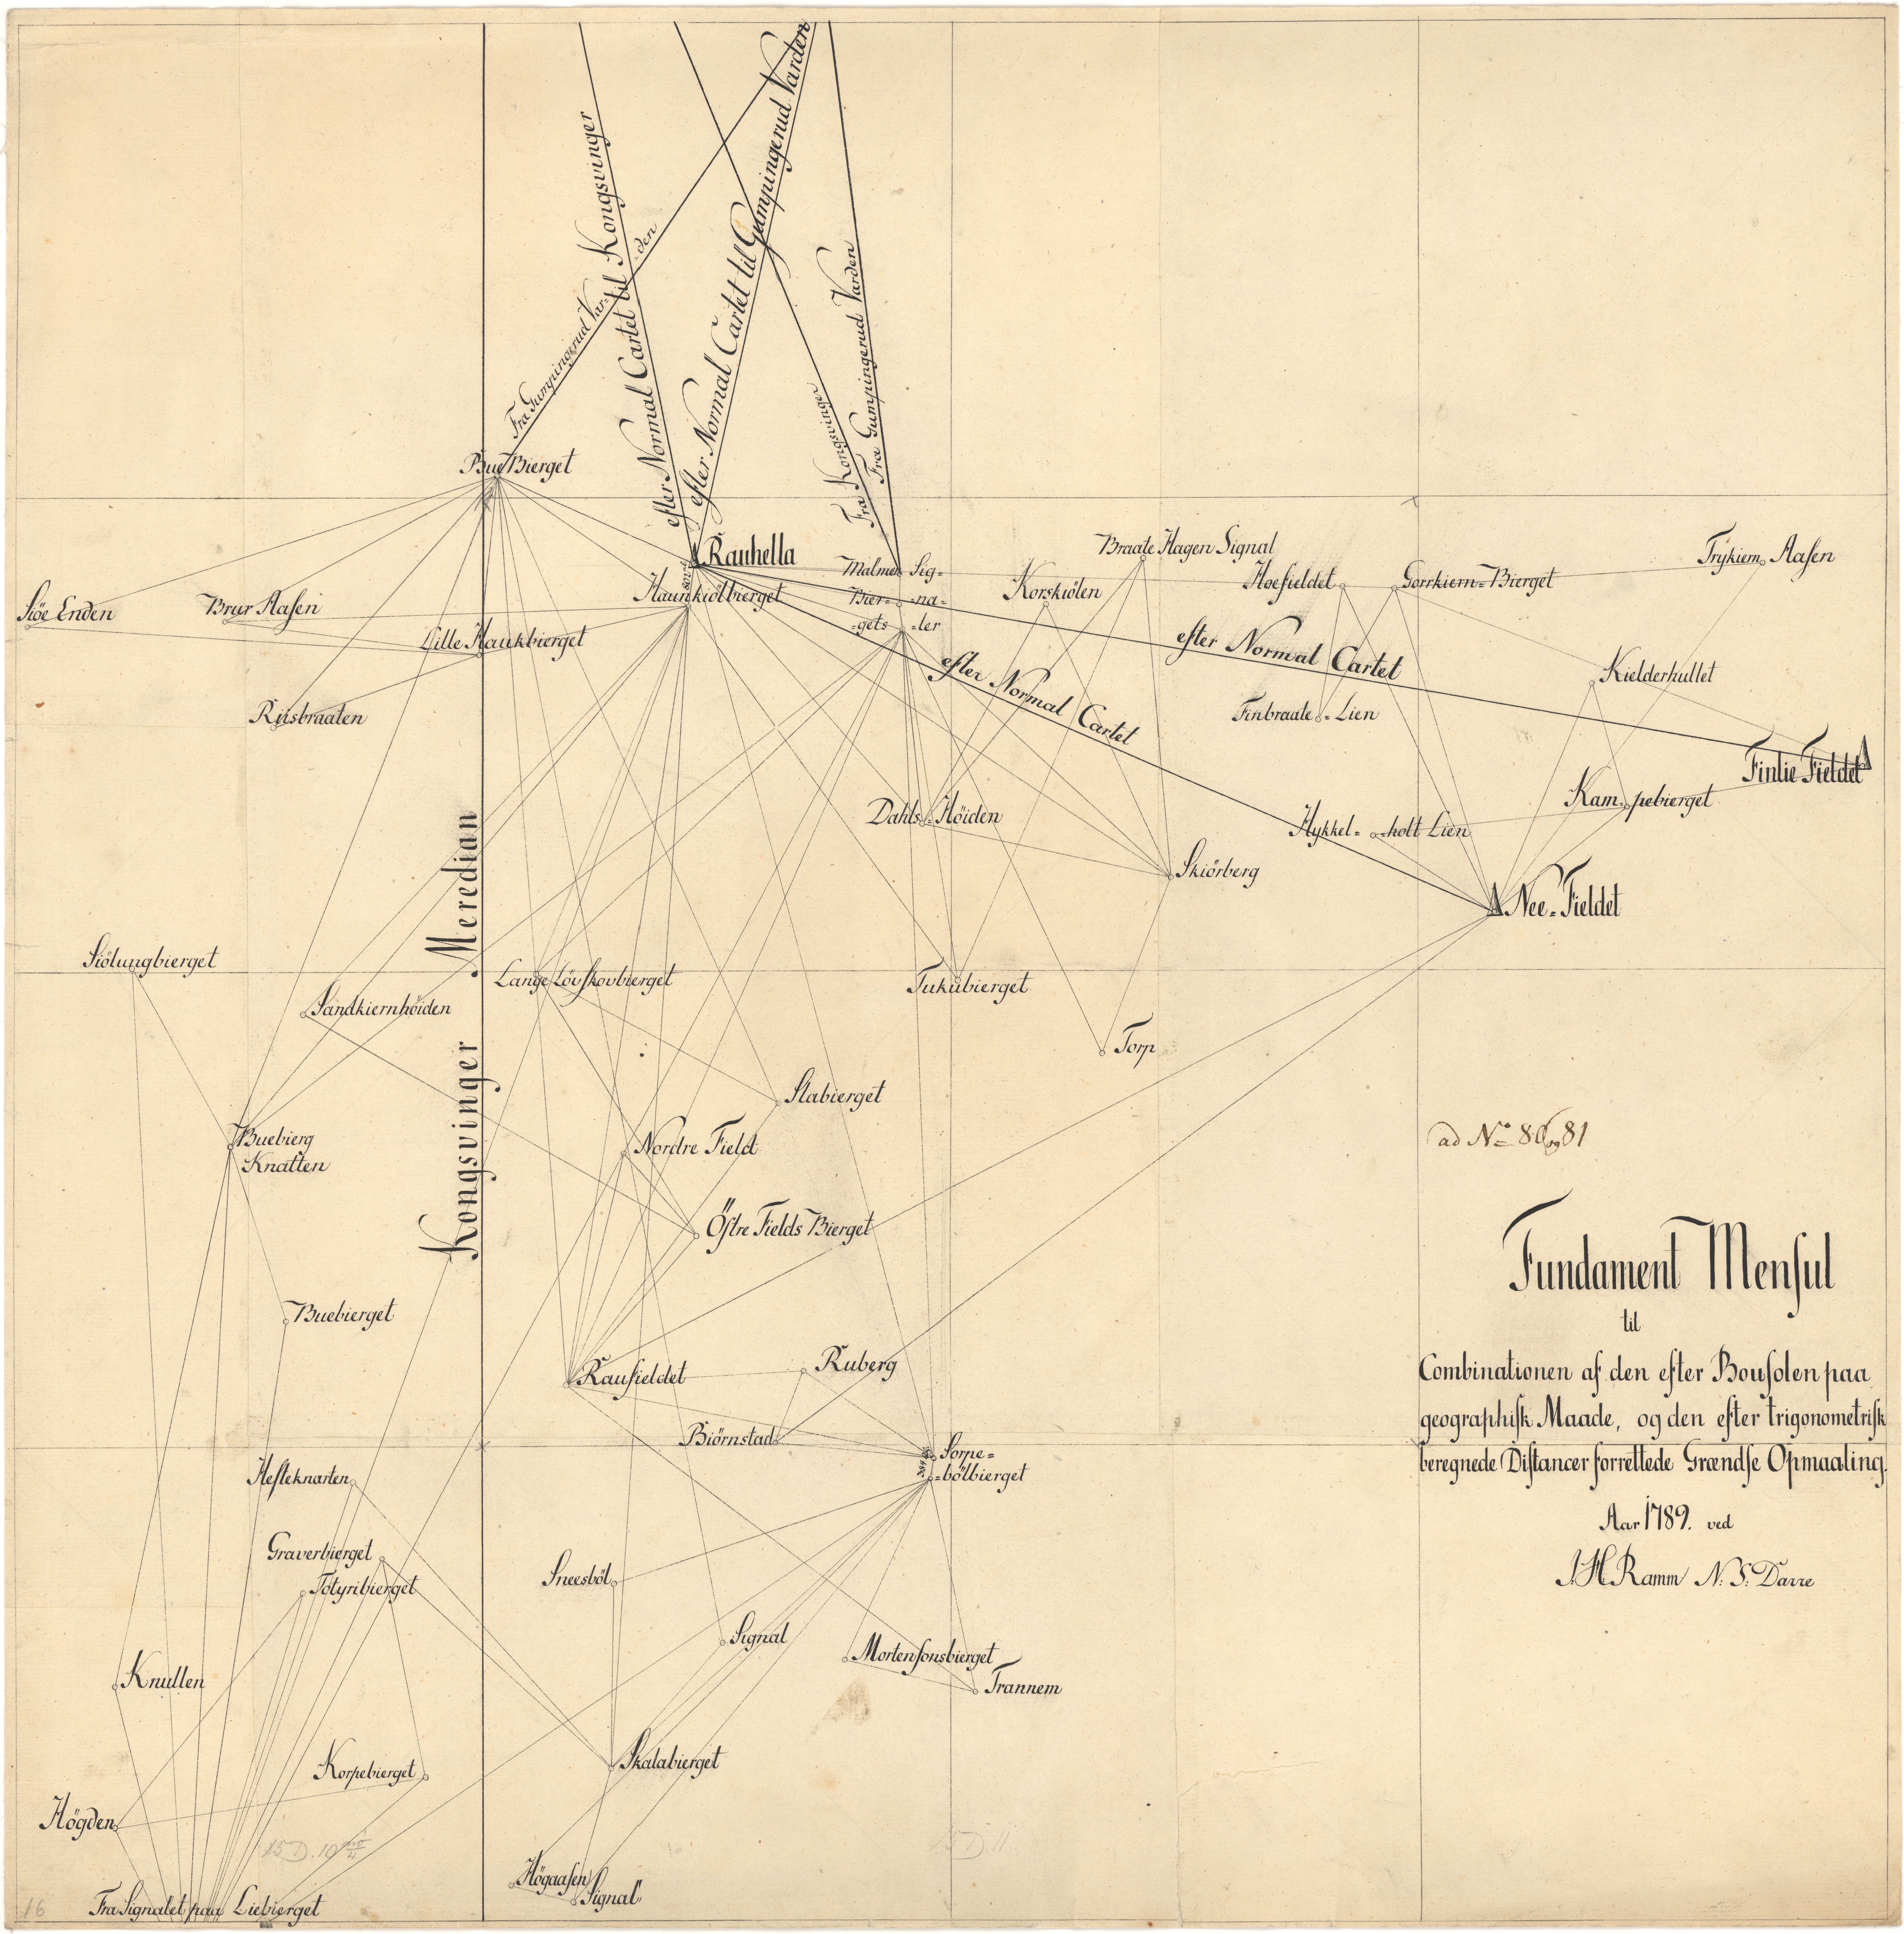 efter Normal Cartet til Kongsvinger
efter Normal Cartet til Gumpingerud Varden
Fra Gumpingerud Var=
=den
Fra Kongsvinger
Fra Gumpingerud Varden
Bue Bierget
Rauhella
Haunkiölbierget
Malmer Sig=
Bier= =na=
=gets =ler
Korskiölen
Braate Hagen Signal
Hoefieldet
Gorrkiern=Bierget
Trykiern Aasen
Siöe Enden
Brur Aasen
Lille Haukbierget
Riisbraaten
efter Normal Cartet
efter Normal Cartet
Finbraate=Lien
Kielderhullet
Finlie Fieldet
Kam=pebierget
Hykkel=holt Lien
Dahls=Höiden
Skiörberg
Nee=Fieldet
Kongsvinger Meredian
Siölungbierget
Sandkiernhöiden
Lange Lövskovbierget
Tukubierget
Torp
Stabierget
Buebierg
Knatten
Nordre Field
Östre Fields Bierget
Buebierget
Raufieldet
Ruberg
Biörnstad
Sorpe=
=bölbierget
Hesteknarten
Graverbierget
Totyribierget
Sneesböl
Signal
Mortensonsbierget
Trannem
Knullen
Korpebierget
Skalabierget
Högden
15 D. 10
15 D. 11.
Högaasen
Signal
Fra Signalet paa Liebierget
16
ad No 80 og 81
Fundament Mensul
til
Combinationen af den efter Bousolen paa
geographisk Maade, og den efter trigonometrisk
beregnede Distancer forrettede Grændse Opmaaling.
Aar 1789. ved
J. H. Ramm N: S: Darre